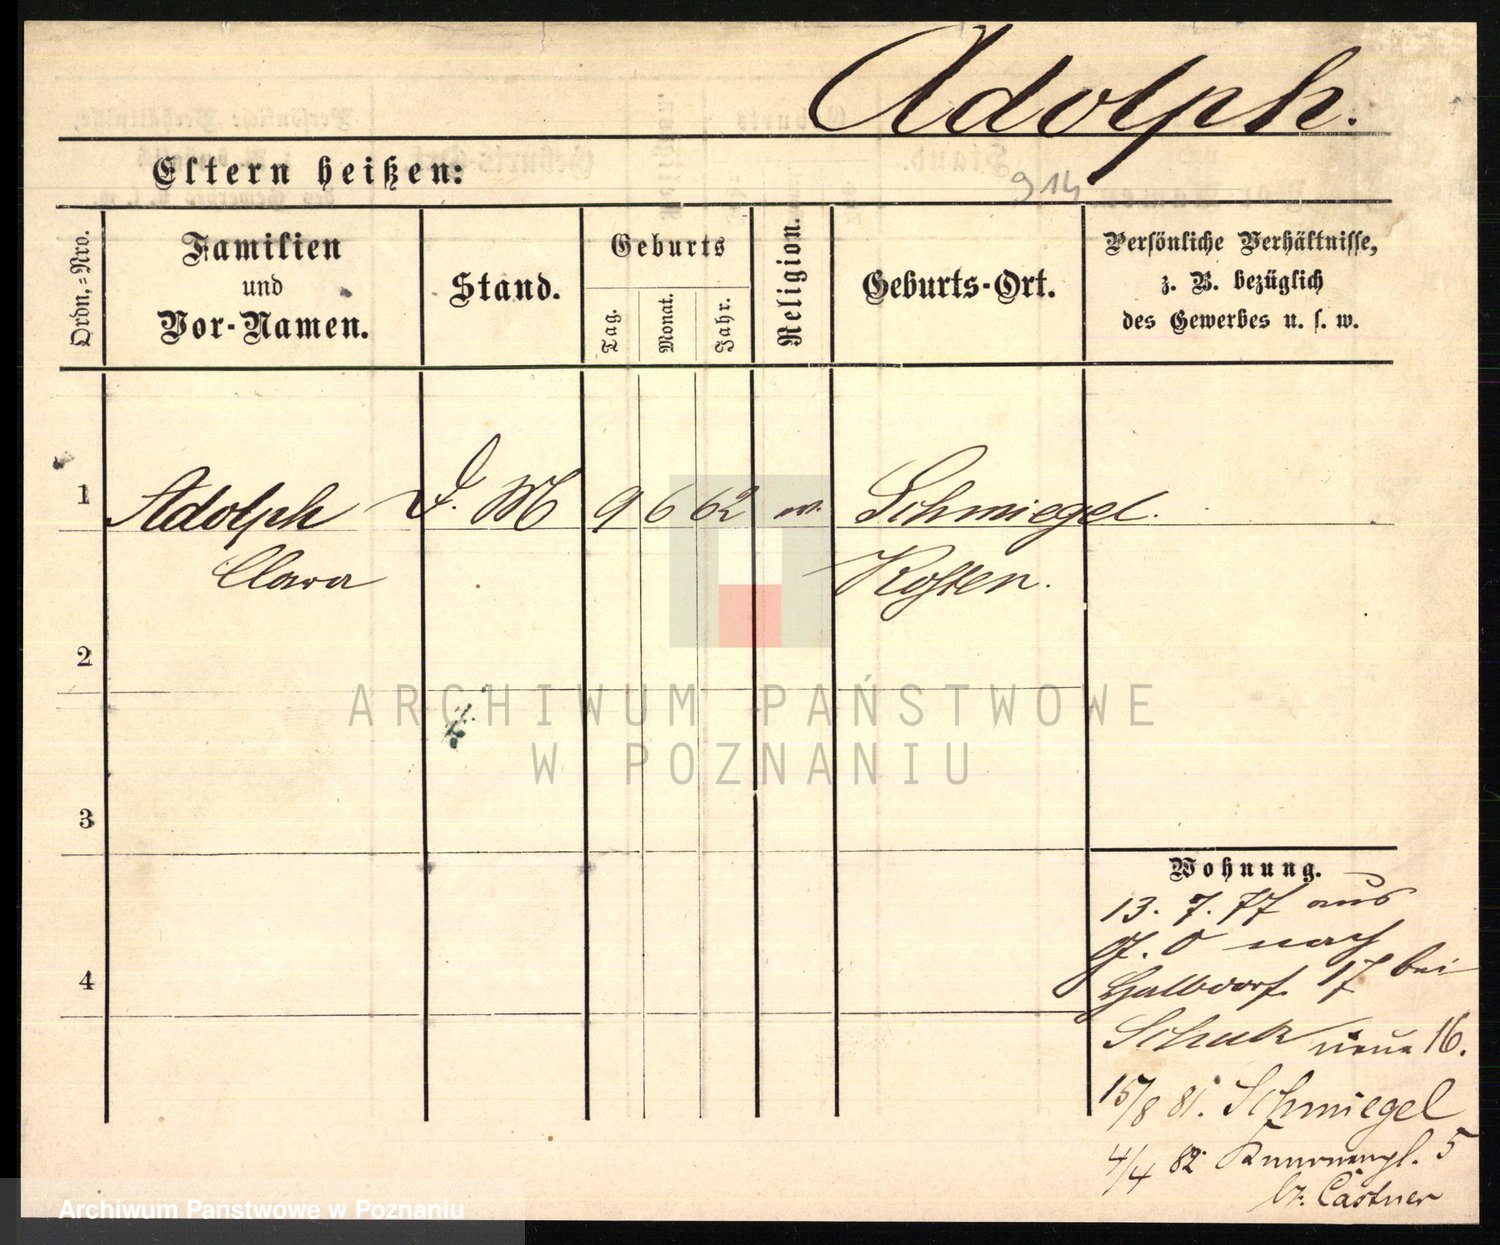 Adolph.
Eltern heißen:
914
Ordn.-Nro.
Familien
und
Vor-Namen.
Stand.
Geburts
Tag.
Monat.
Jahr.
Religion.
Geburts-Ort.
Persönliche Verhältnisse,
z. B. bezüglich
des Gewerbes u. s. w.
1
Adolph
D. M
9
6
62
Schmiegel.
Clara
Kosten.
2
3
4
Wohnung.
13. 7. 77 aus
O nach
Halbdorf. 17 bei
Schulz neue 16.
15/8 81. Schmiegel
4/4 82 5
bz. Castner
ARCHIWUM PAŃSTWOWE
W POZNANIU
Archiwum Państwowe w Poznaniu